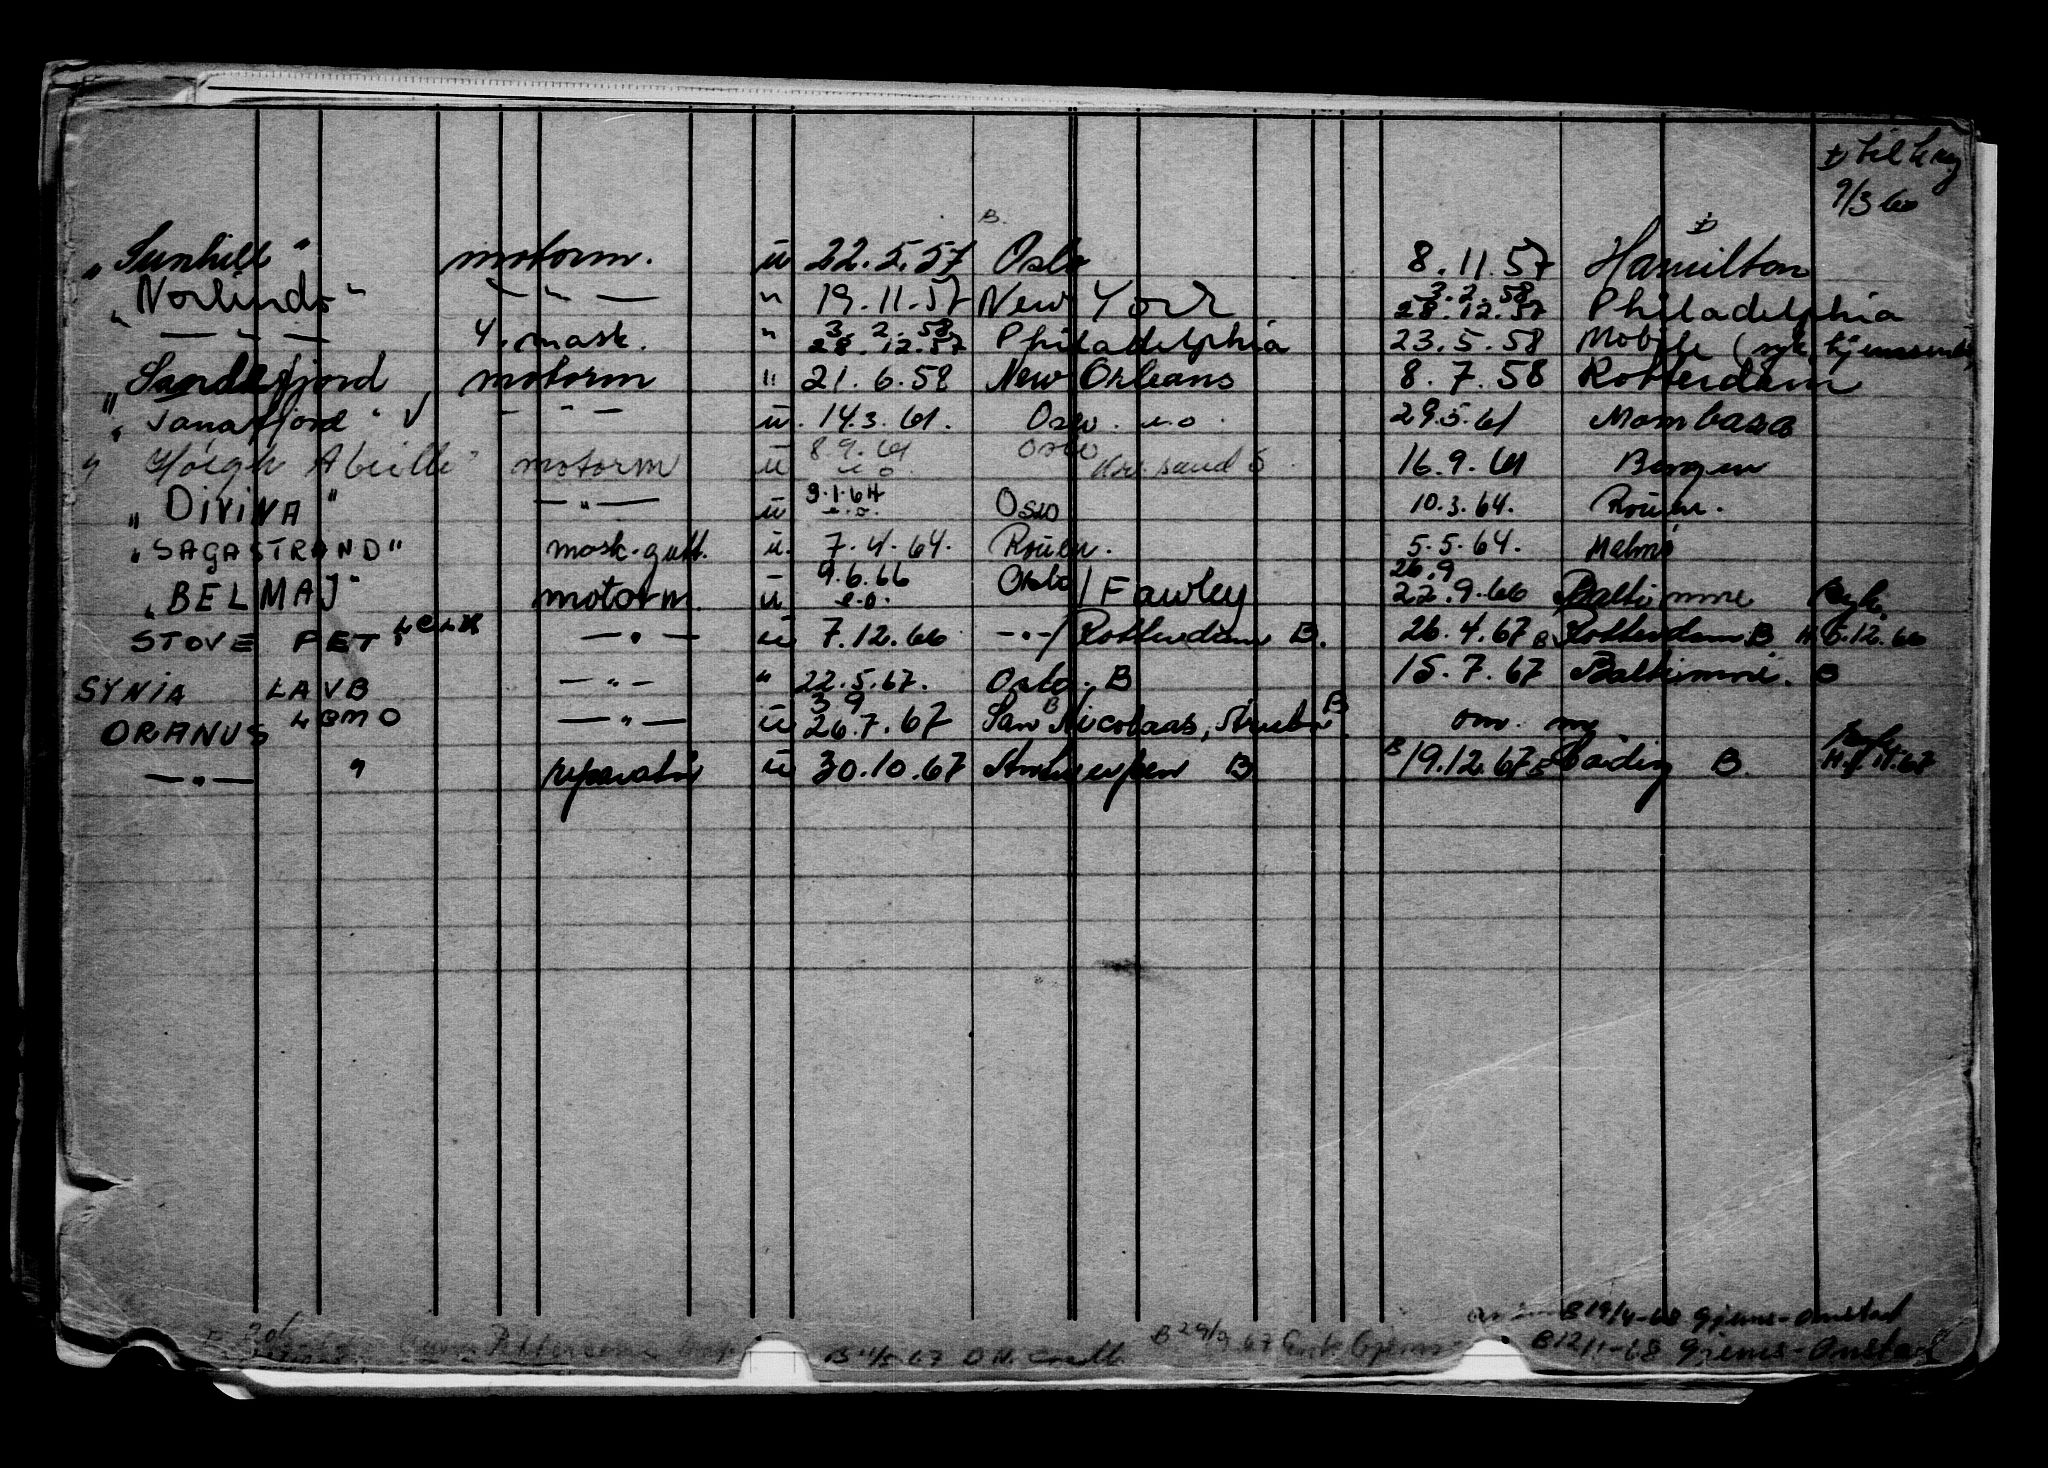 9/3 60
B.
"Sunhill" motorm. ū 22.5.57 Oslo 8.11.57 Hamilton
"Norlinds" — " — " 19.11.57 New York 3.2.58 28.12.57 Philadelphia
— " — 4. mask. " 3.2.58 28.12.57 Philadelphia 23.5.58 Mobile
"Sandefjord motorm " 21.6.58 New Orleans 8.7.58 Rotterdam
"Tanafjord" V — " — ū. 14.3.61. Oslo. e.o. 29.5.61 Mombasa
" Höegh Abeille" motorm ū 8.9.61 e.o. Oslo Kr. sand S. 16.9.61 Bergen
"DIVINA" — " — ū 9.1.64 e.o. Oslo 10.3.64. Rouen.
"SAGASTRAND" mask.gutt. ū. 7.4.64. Rouen. 5.5.64. Malmö
"BELMAJ" motorm. ū 9.6.66 e.o. Oslo / Fawley 26.9 22.9.66 Baltimore
STOVE PET LCLX — " — ū 7.12.66 — " — / Rotterdam B. 26.4.67 B Rotterdam B H 6.12.66
SYNIA LAVB — " — " 22.5.67. Oslo, B 15.7.67 Baltimore. B
ORANUS LBMO — " — ū 3 9 26.7.67 San Nicolaas, Aruba B om. mg
— " — " reparatør ū 30.10.67 Antwerpen B B 19.12.67 B B. H. 67
B 19/4-68 Gjems-Onstad
B 67 O.N. B 29/9 67 Erik Gjems- B 12/11-68 Gjems-Onstad